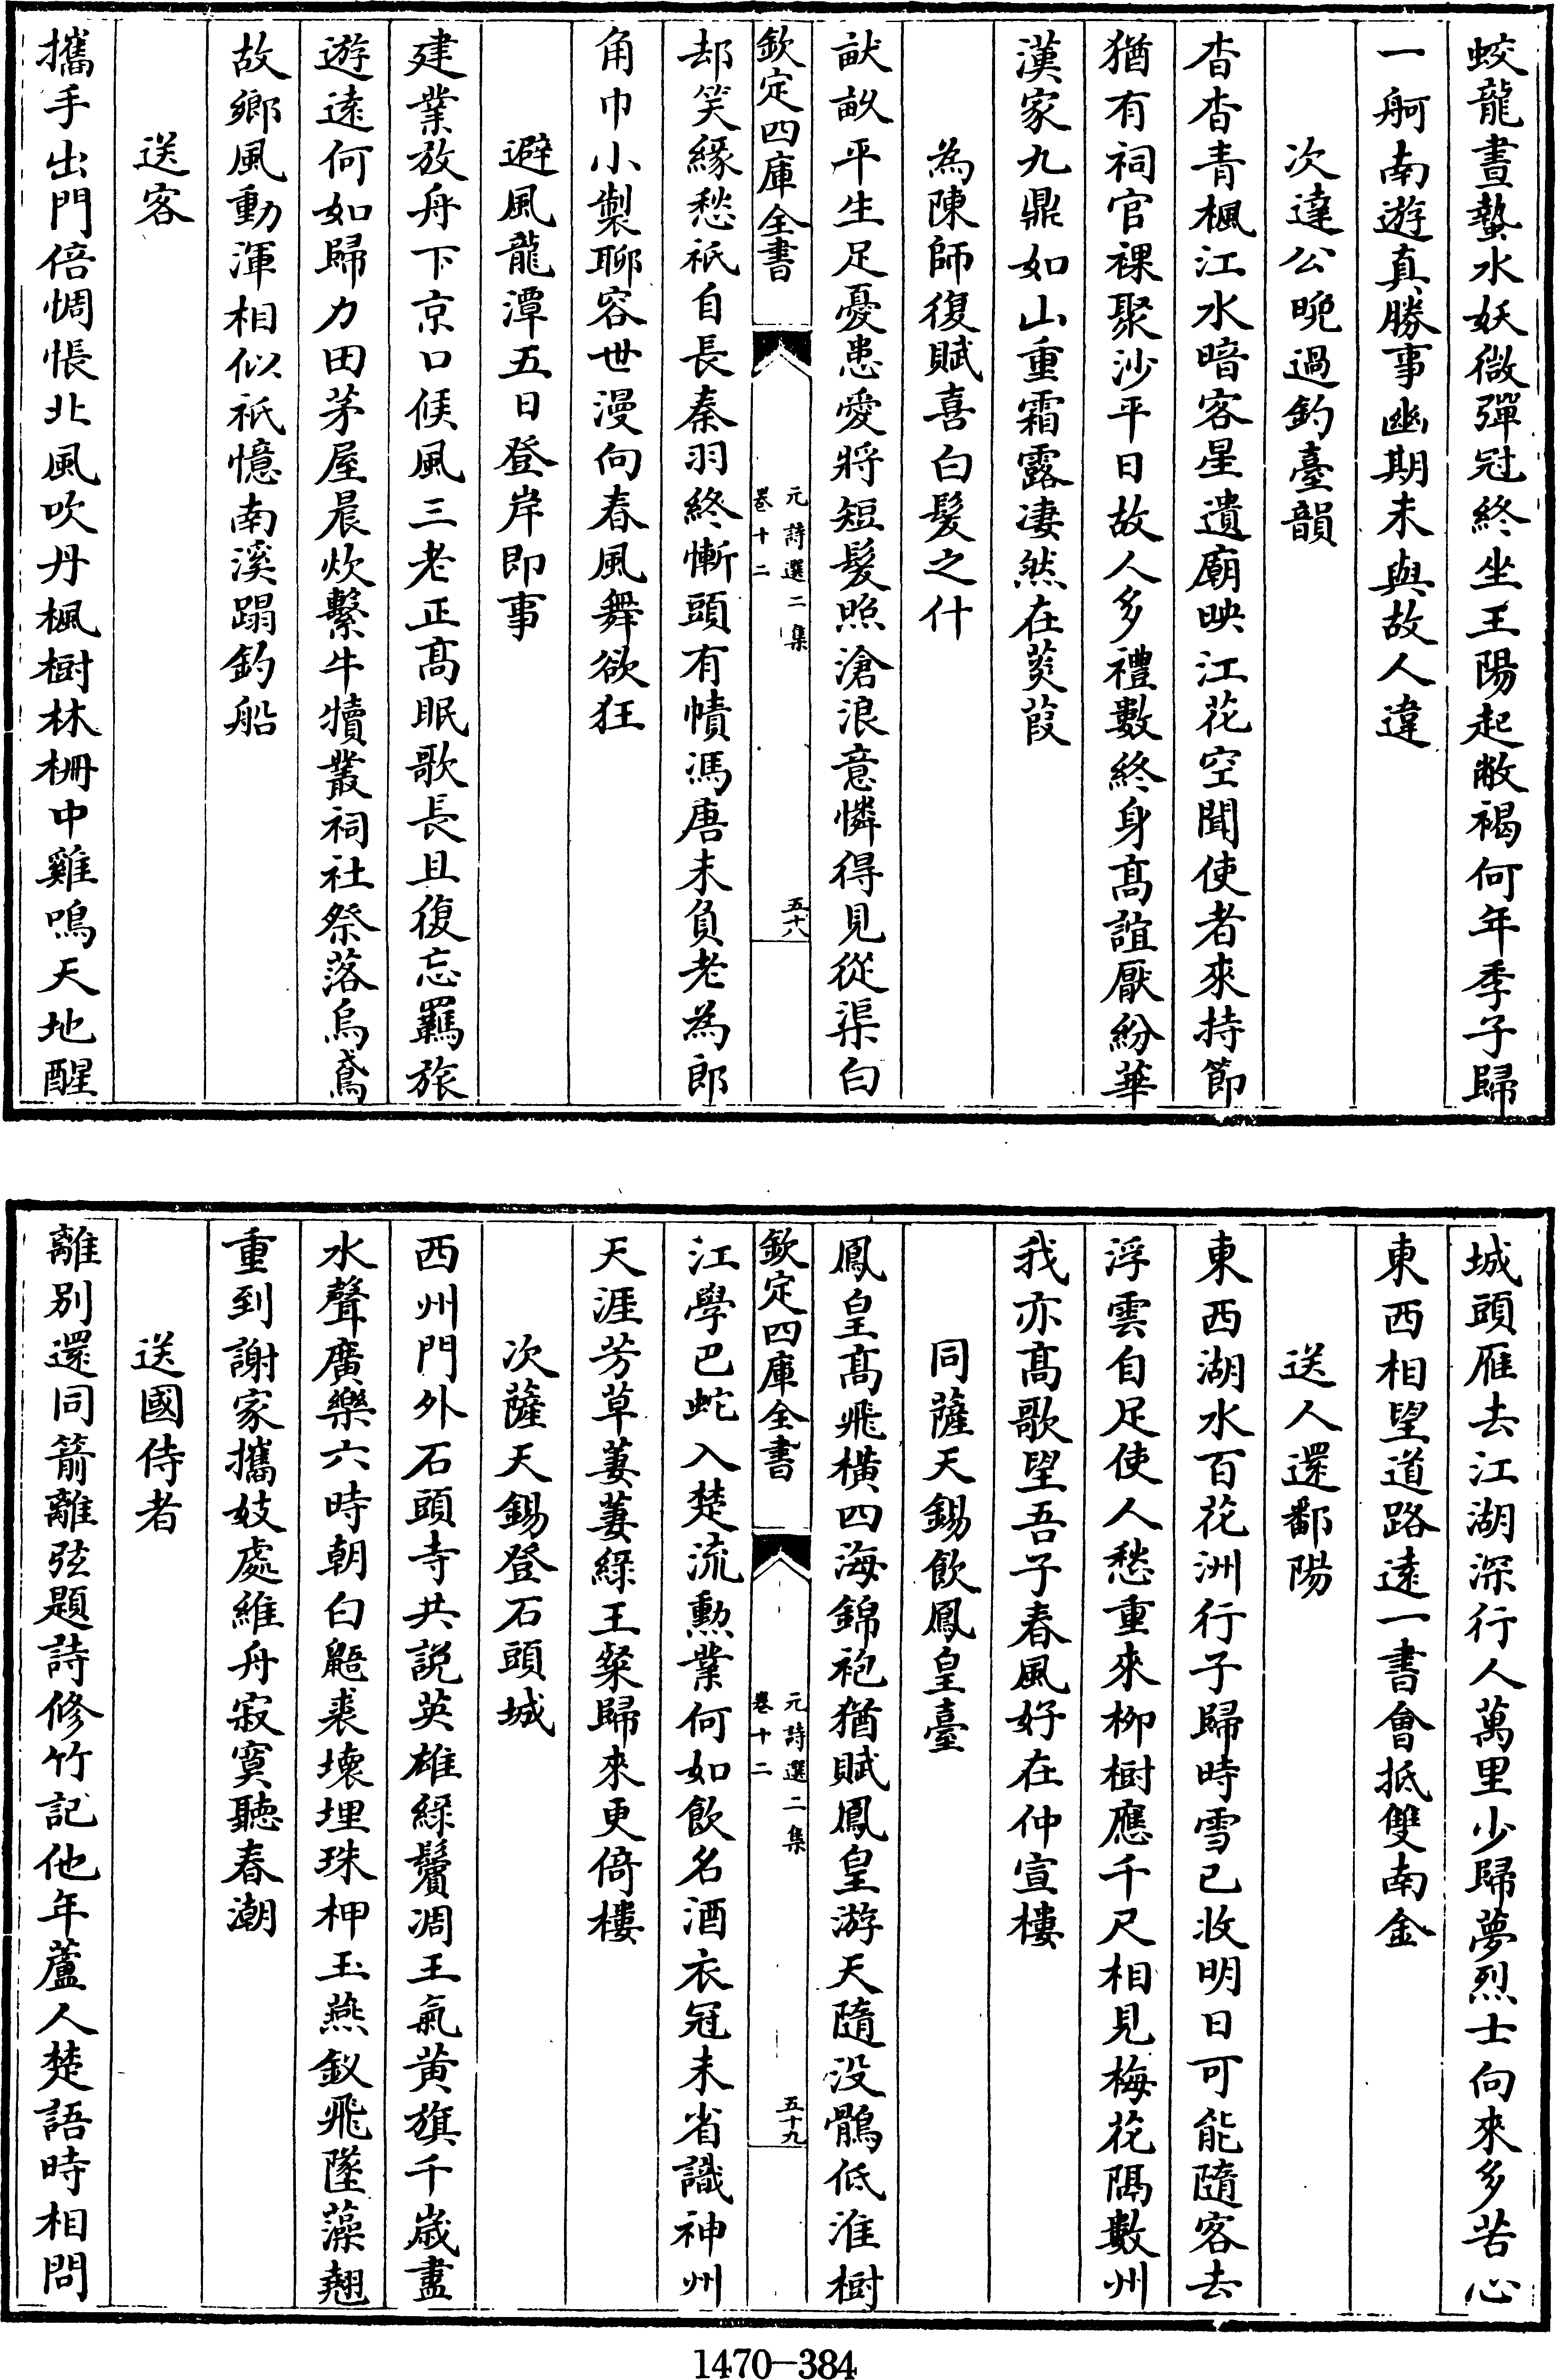 蛟龍晝蟄水妖微彈冠終坐王陽起敝褐何年季子歸
一舸南遊真勝事幽期未與故人違
次達公晚過釣臺韻
杳杳青楓江水暗客星遺廟映江花空聞使者來持節
猶有祠官裸聚沙平日故人多禮數終身髙誼厭紛華
漢家九鼎如山重霜露凄然在葭葭
為陳師復賦喜白髮之什
畎畝平生足憂患愛將短髮照滄浪意憐得見從渠白
欽定四庫全書
元詩選二集
卷十二
五十八
却笑緣愁祇自長秦羽終慚頭有幘馮唐未負老為郎
角巾小製聊容世漫向春風舞欲狂
避風龍潭五日登岸即事
建業放舟下京口候風三老正髙眠歌長且復忘羈旅
遊逺何如歸力田茅屋晨炊繫牛犢叢祠社祭落烏鳶
故鄉風動渾相似祇憶南溪蹋釣船
送客
攜手出門倍惆悵北風吹丹楓樹林柵中雞鳴天地醒
城頭雁去江湖深行人萬里少歸夢烈士向來多苦心
東西相望道路逺一書會抵雙南金
送人還鄱陽
東西湖水百花洲行子歸時雪已收明日可能隨客去
浮雲自足使人愁重來柳樹應千尺相見梅花隔數州
我亦髙歌望吾子春風好在仲宣樓
同薩天錫飲鳳皇臺
鳳皇髙飛橫四海錦袍猶賦鳳皇游天隨沒鶻低淮樹
欽定四庫全書
元詩選二集
卷十二
五十九
江學巴蛇入楚流勲業何如飲名酒衣冠未省識神州
天涯芳草萋萋綠王粲歸來更倚樓
次薩天錫登石頭城
西州門外石頭寺共説英雄綠鬢凋王氣黄旗千嵗盡
水聲廣樂六時朝白鼯裘壞埋珠柙玉燕釵飛墜藻翹
重到謝家攜妓處維舟寂寞聽春潮
送國侍者
離別還同箭離弦題詩修竹記他年蘆人楚語時相問
1470—384